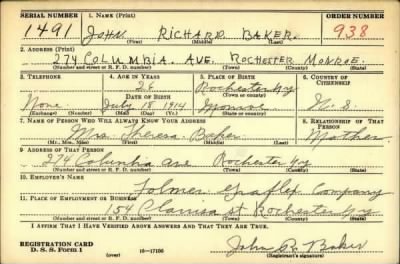 SERIAL NUMBER 1. NAME (Print) ORDER NUMBER
1491 JOHN RICHARD BAKER. 938
(First) (Middle) (Last)
2. ADDRESS (Print)
274 COLUMBIA AVE. ROCHESTER MONROE.
(Number and street or R. F. D. number) (Town) (County) (State)
3. TELEPHONE 4. AGE IN YEARS 5. PLACE OF BIRTH 6. COUNTRY OF CITIZENSHIP
Rochester NY
DATE OF BIRTH (Town or county)
None July 18 1914 Monroe U. S.
(Exchange) (Number) (Mo.) (Day) (Yr.) (State or country)
7. NAME OF PERSON WHO WILL ALWAYS KNOW YOUR ADDRESS 8. RELATIONSHIP OF THAT PERSON
Mrs. Theresa Baker Mother
(Mr., Mrs., Miss) (First) (Middle) (Last)
9. ADDRESS OF THAT PERSON
274 Columbia ave Rochester NY
(Number and street or R. F. D. number) (Town) (County) (State)
10. EMPLOYER'S NAME
Folmer Graflex Company
11. PLACE OF EMPLOYMENT OR BUSINESS
154 Clarissa st Rochester NY
(Number and street or R. F. D. number) (Town) (County) (State)
I AFFIRM THAT I HAVE VERIFIED ABOVE ANSWERS AND THAT THEY ARE TRUE.
REGISTRATION CARD
D. S. S. Form 1 (over) 16—17106 John R. Baker
(Registrant's signature)